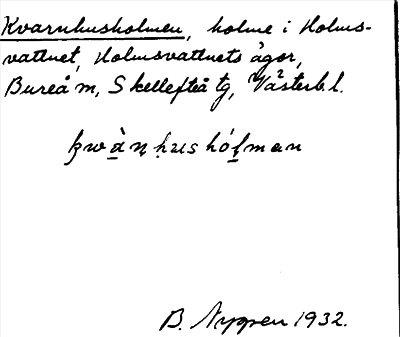 Kvarnhusholmen, holme i Holms-
vattnet, Holmsvattnets ägor,
Bureå sn, Skellefteå tg, Västerb. l.
B. Nygren 1932.